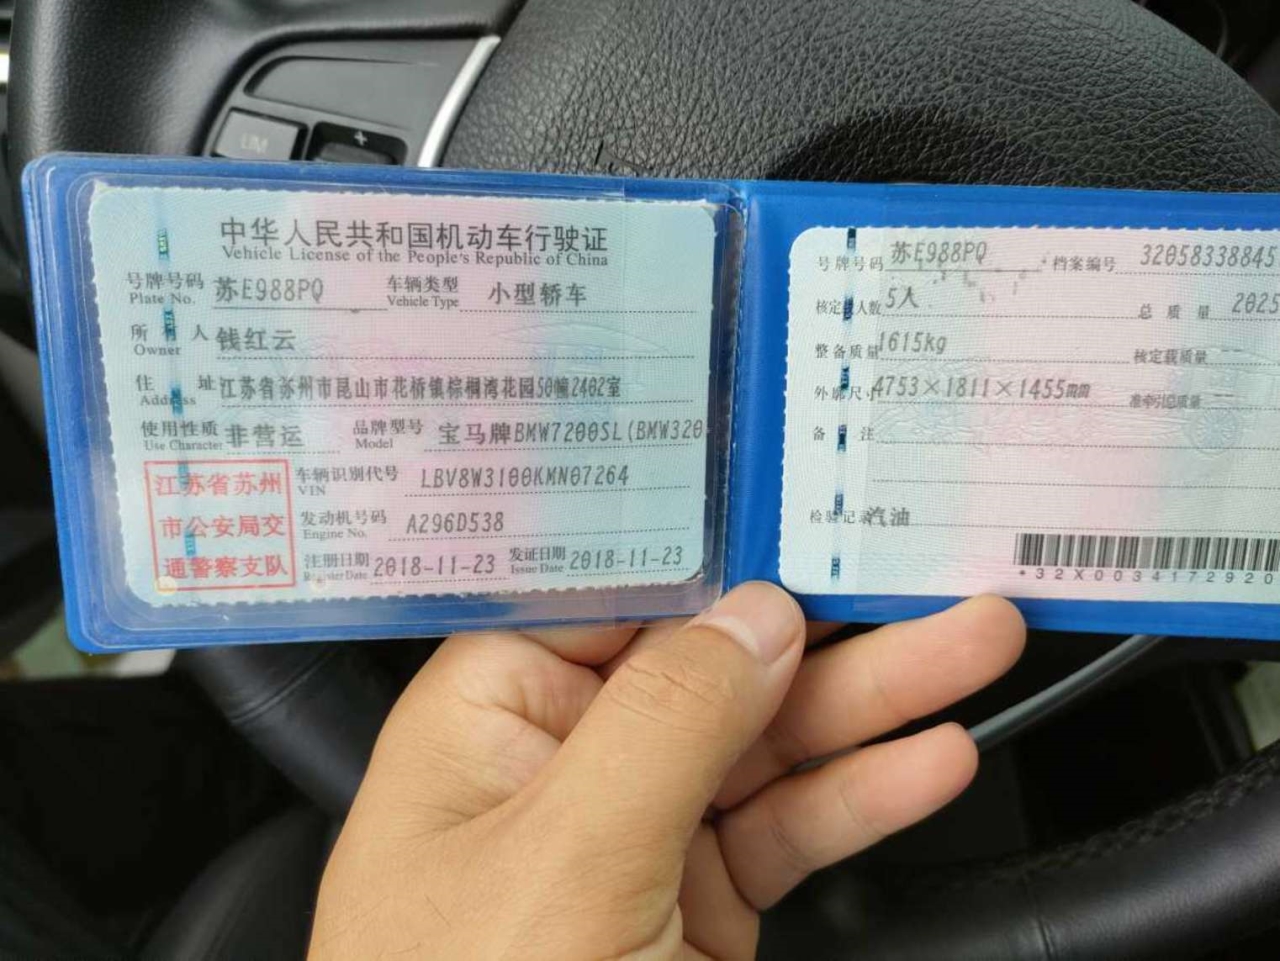 LIM
+
中华人民共和国机动车行驶证
Vehicle License of the People's Republic of China
号牌号码 苏E988PQ 车辆类型 小型轿车
Plate No. Vehicle Type
所有人 钱红云
Owner
住址 江苏省苏州市昆山市花桥镇棕榈湾花园50幢2402室
Address
使用性质 非营运 品牌型号 宝马牌BMW7200SL(BMW320
Use Character Model
江苏省苏州
市公安局交
通警察支队
车辆识别代号 LBV8W3100KMN07264
VIN
发动机号码 A296D538
Engine No.
注册日期 2018-11-23 发证日期 2018-11-23
Register Date Issue Date
号牌号码 苏E988PQ 档案编号 32058338845
核定载人数 5人 总质量 2025
整备质量 1615kg 核定载质量 --
外廓尺寸 4753×1811×1455mm 准牵引总质量 --
备注
检验记录 汽油
*32X0034172920